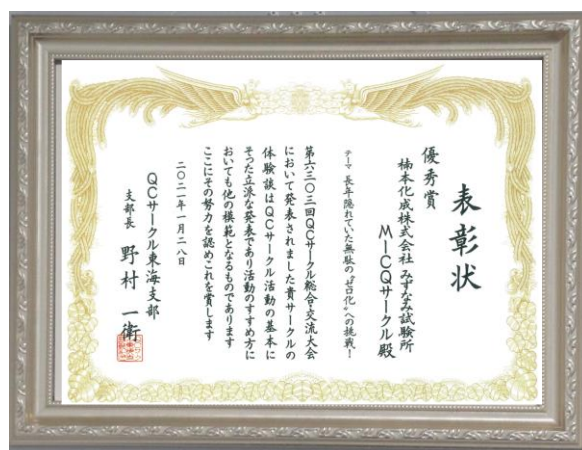 表彰状
優秀賞
楠本化成株式会社 みずなみ試験所
MICQサークル殿
テーマ 長年隠れていた無駄の“召化”への挑戦!
第六三〇三回QCサークル総合・交流大会
において発表されました貴サークルの
体験談はQCサークル活動の基本に
そった立派な発表であり活動のすすめ方に
おいても他の模範となるものであります
ここにその努力を認めこれを賞します
二〇二一年一月二八日
QCサークル東海支部
支部長 野村 一衛